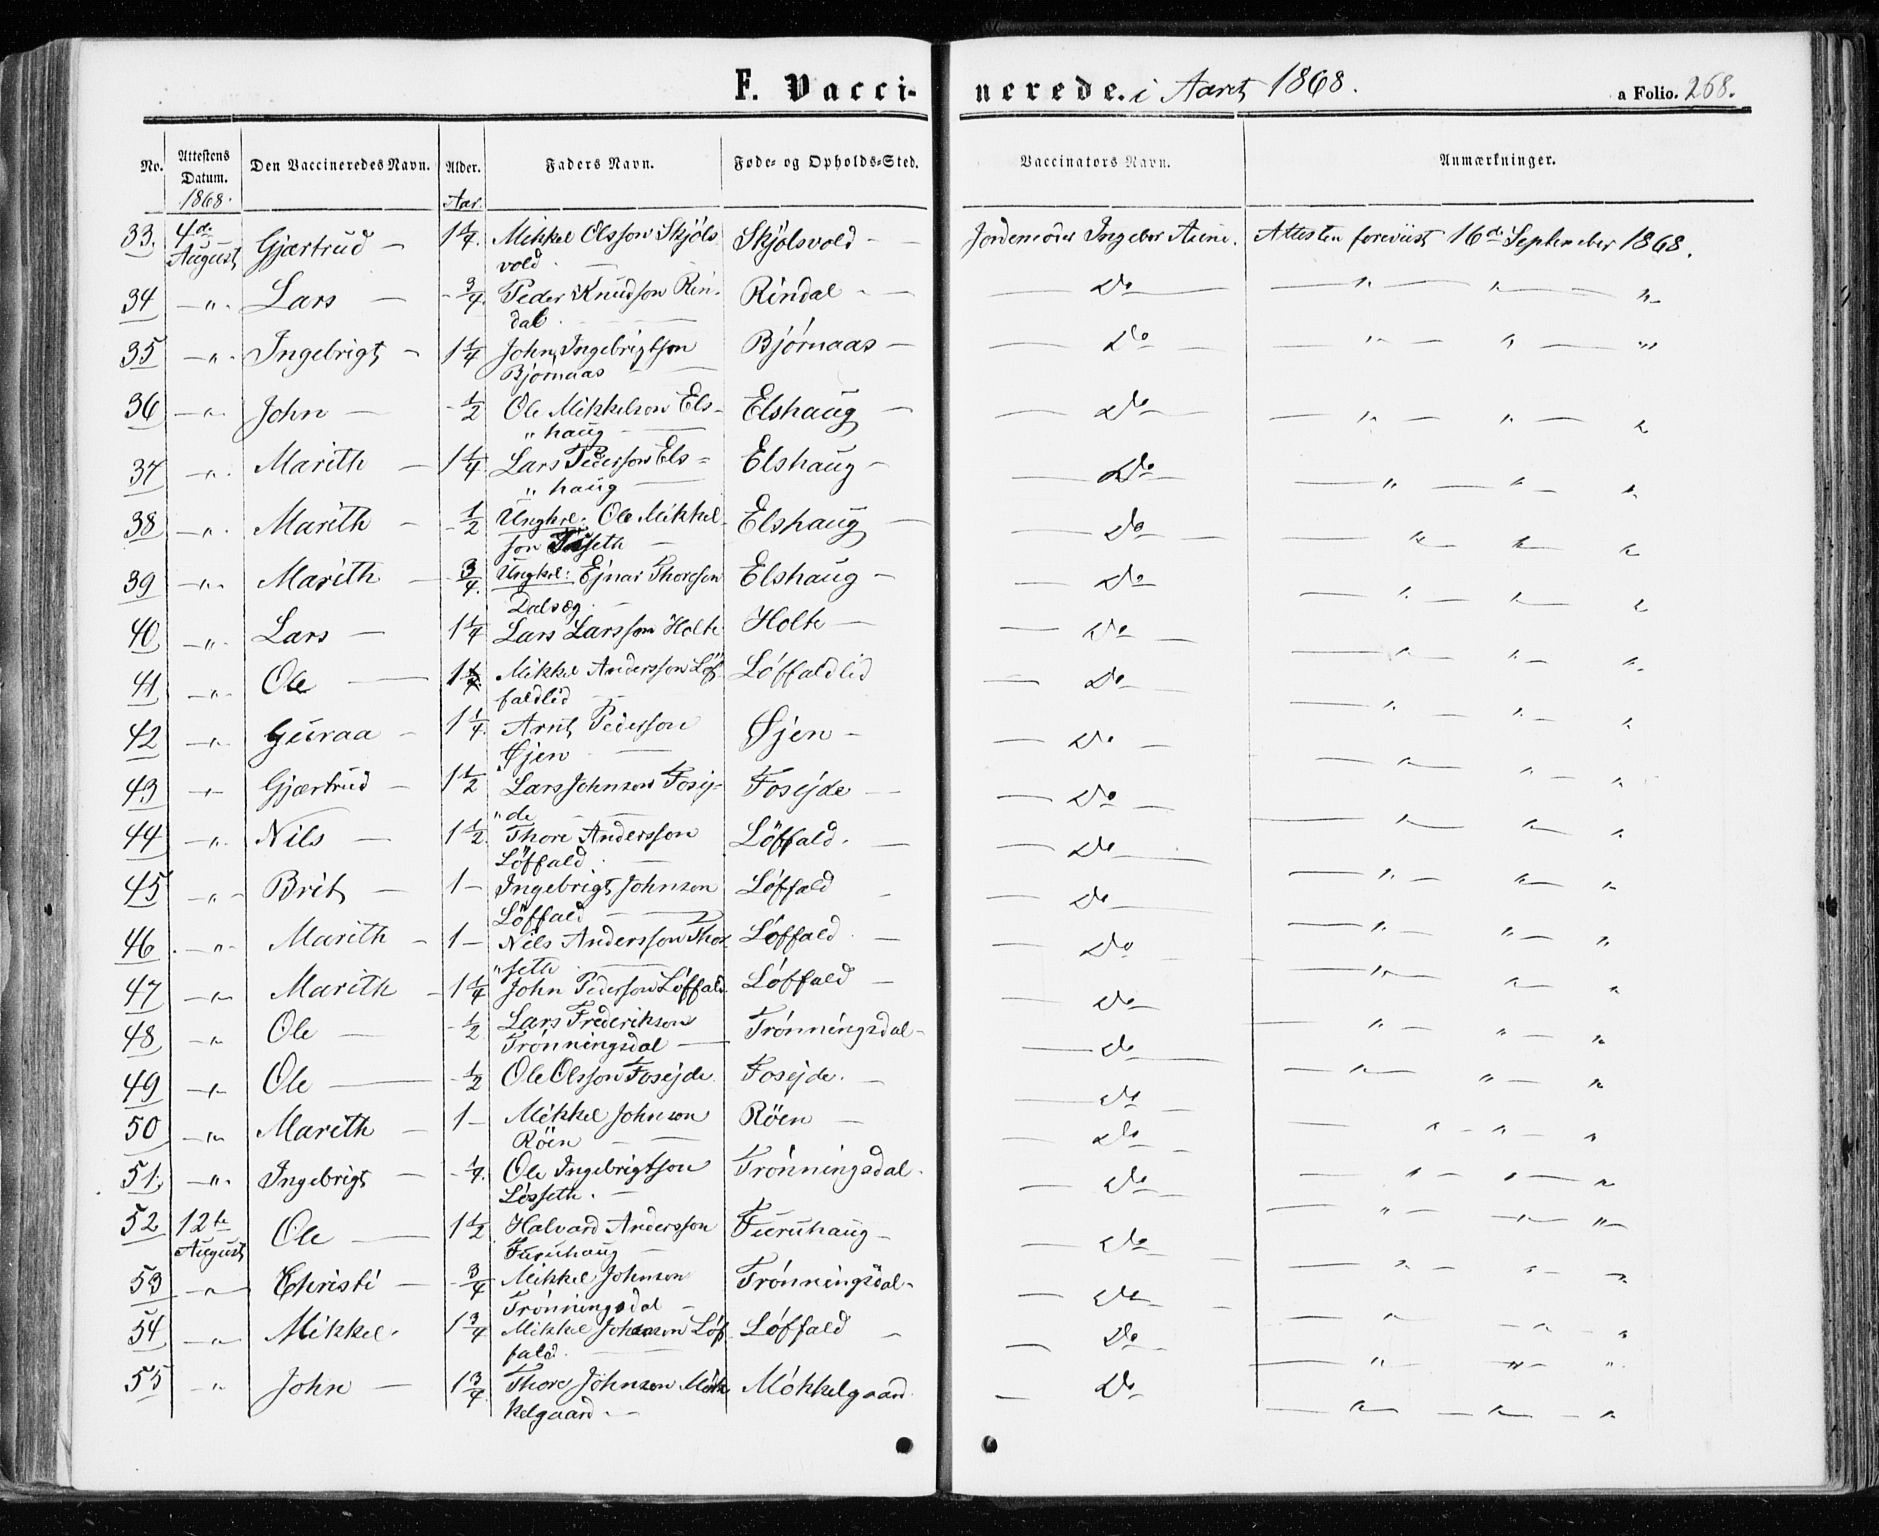 F. Vaccinerede. i Aaret 1868. a Folio. 268.
No. Attestens Datum. Den Vaccineredes Navn. Alder. Faders Navn. Føde- og Opholds-Sted. Vaccinators Navn. Anmærkninger.
1868. Aar.
33. 4de August Gjærtrud – 1 1/4. Mikkel Olsson Skjöls Skjölsvold – Jordemoder Ingebor Attesten foreviist 16de September 1868.
vold. –
34 – " – Lars – 3/4. Peder Knudson Rin- Rindal – – Do – " " "
dal. –
35 – " – Ingebrigt – 1 1/4 John Ingebrigtson Bjórnaas – – Do – " " "
Bjórnaas –
36 – " John – 1/2 Ole Mikkelson Els- Elshaug – – Do – " " "
" haug –
37 – " – Marith – 1 1/4. Lars Pederson Els= Elshaug – – Do – " " "
" haug –
38 – " – Marith – 1/2 Ungkrl: Ole Mikkel- Elshaug – – Do – " " "
son –
39 – " – Marith – 3/4. Ungkrl: Ejnar Thoreson Elshaug – – Do – " " "
Dalsæg. –
40 – " – Lars – 1 1/4 Lars Larsson Holte Holte – – Do – " " "
41 – " – Ole – Mikkel Andersson Löf Löffaldlid – Do – " " "
faldlid –
42 – " – Guraa – 1 1/4. Arnt Pederson Øjen – – Do – " " "
Øjen –
43 – " – Gjærtrud – 1 1/2 Lars Johnson Fosej- Fosejde – – Do – " " "
" de –
44 – " – Nils – 1 1/2. Thore Andersson Löffald. – – Do – " " "
Löffald. –
45 – " – Brit – 1 – Ingebrigt Johnson Löffald – – Do – " " "
Löffald –
46. – " – Marith – 1 – Nils Andersson Thor Löffald. – – Do – " " "
" seth –
47 – " – Marith – 1 1/4 John Pederson Löffald. Löffald – – Do – " " "
48 – " Ole – 1/2 Lars Frederikson Trónningsdal – – Do – " " "
Trónningsdal –
49 – " – Ole – 1/2 Ole Olsson Fosejde. Fosejde. – – Do – " " "
50 – " – Marith – 1 – Mikkel Johnson Röen – – Do – " " "
Röen –
51. – " – Ingebrigt – 1/4. Ole Ingebrigtson Trónningsdal. – Do – " " "
Lösseth. –
52 12te August Ole – 1 1/2 Halvard Andersson Furuhaug – – Do – " " "
Furuhaug –
53 – " – Christi – 3/4 Mikkel Johnson Trónningsdal – – Do – " " "
Trónningsdal –
54 – " Mikkel. 1 3/4 Mikkel Johnson Löf Löffald – – Do – " " "
fald. –
55 – " John – 1 3/4. Thore Johnson Mók Mókkelgaard. – Do – " " "
kelgaard –